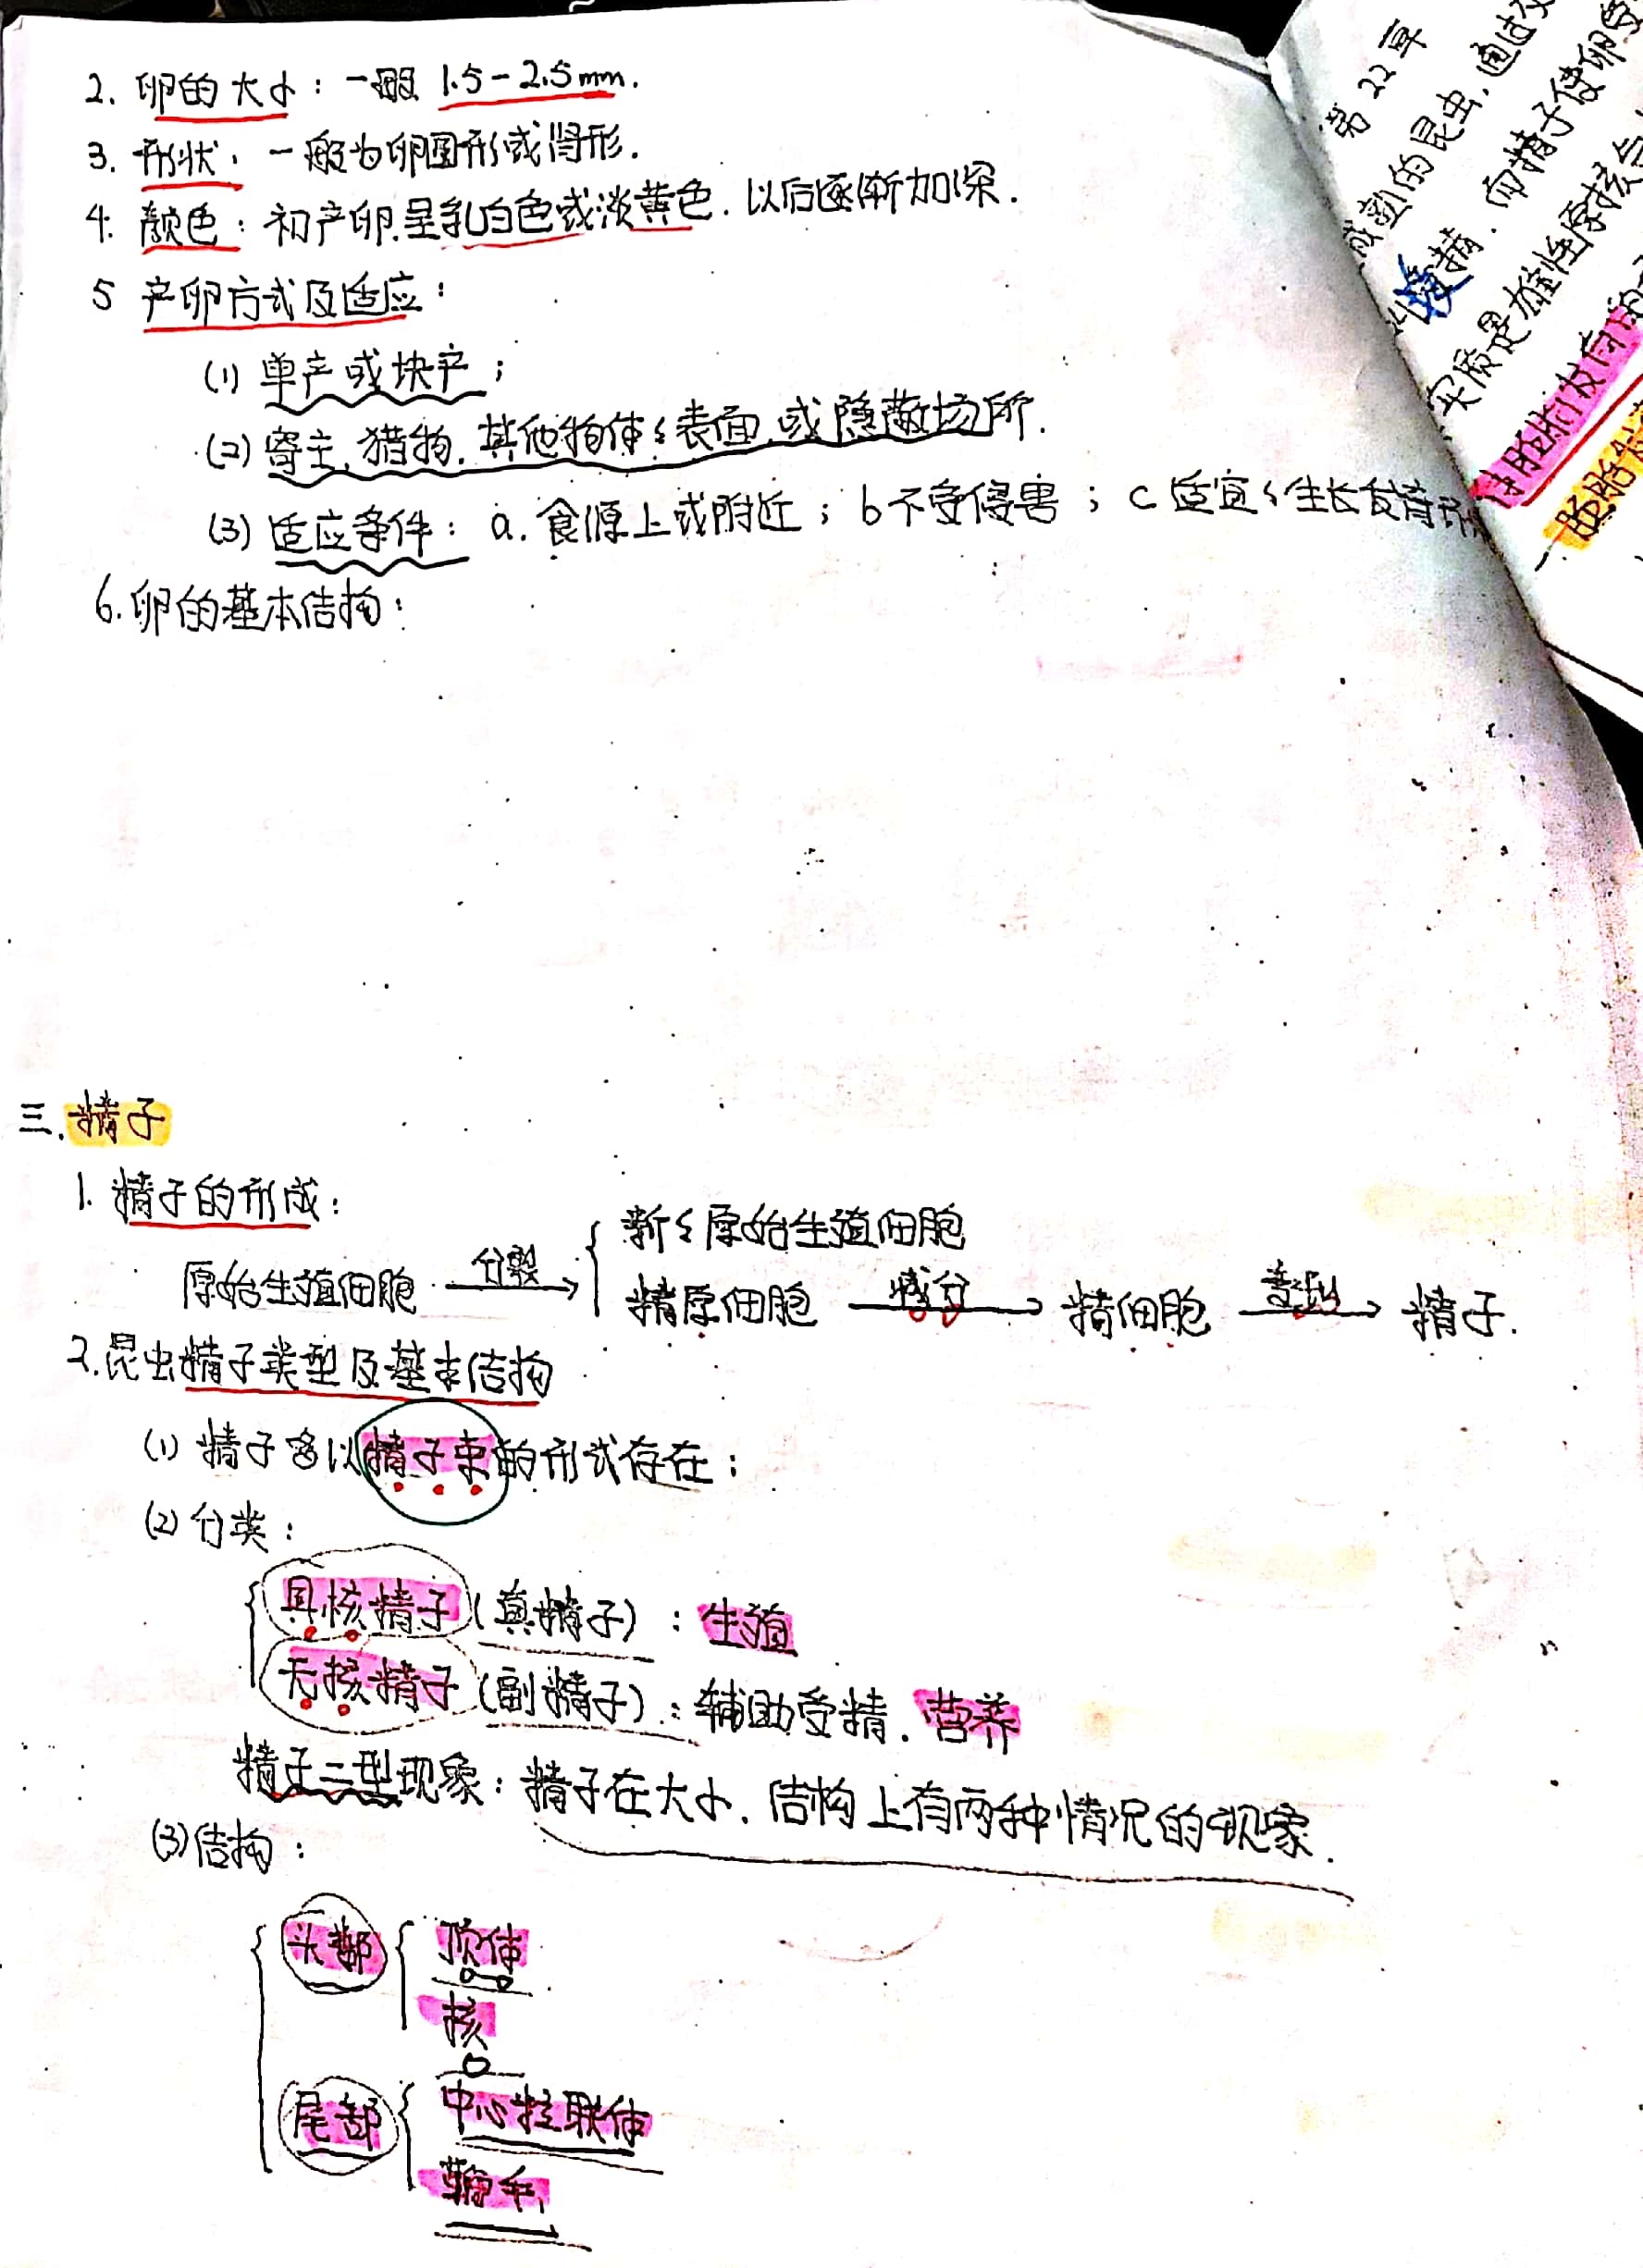 2. 卵的大小：一般 1.5-2.5mm.
3. 形状：一般为卵圆形或肾形.
4. 颜色：初产卵呈乳白色或淡黄色. 以后逐渐加深.
5 产卵方式及适应：
(1) 单产或块产；
(2) 寄主. 猎物. 其他物体表面. 或隐蔽场所.
(3) 适应条件：a. 食源上或附近；b 不受侵害；c 适宜生长发育
6. 卵的基本结构：
三. 精子
1. 精子的形成：
原始生殖细胞 分裂→ { 新原始生殖细胞
精原细胞 减分→ 精细胞 变型→ 精子.
2. 昆虫精子类型及基本结构
(1) 精子多以精子束的形式存在；
(2) 分类：
具核精子 (真精子)：生殖
无核精子 (副精子)：辅助受精. 营养
精子二型现象：精子在大小. 结构上有两种情况的现象.
(3) 结构：
头部 { 顶体
核
尾部 { 中心粒联体
鞭毛
第22章
的昆虫, 通过
精. 向精子使卵
实质是雄性原核